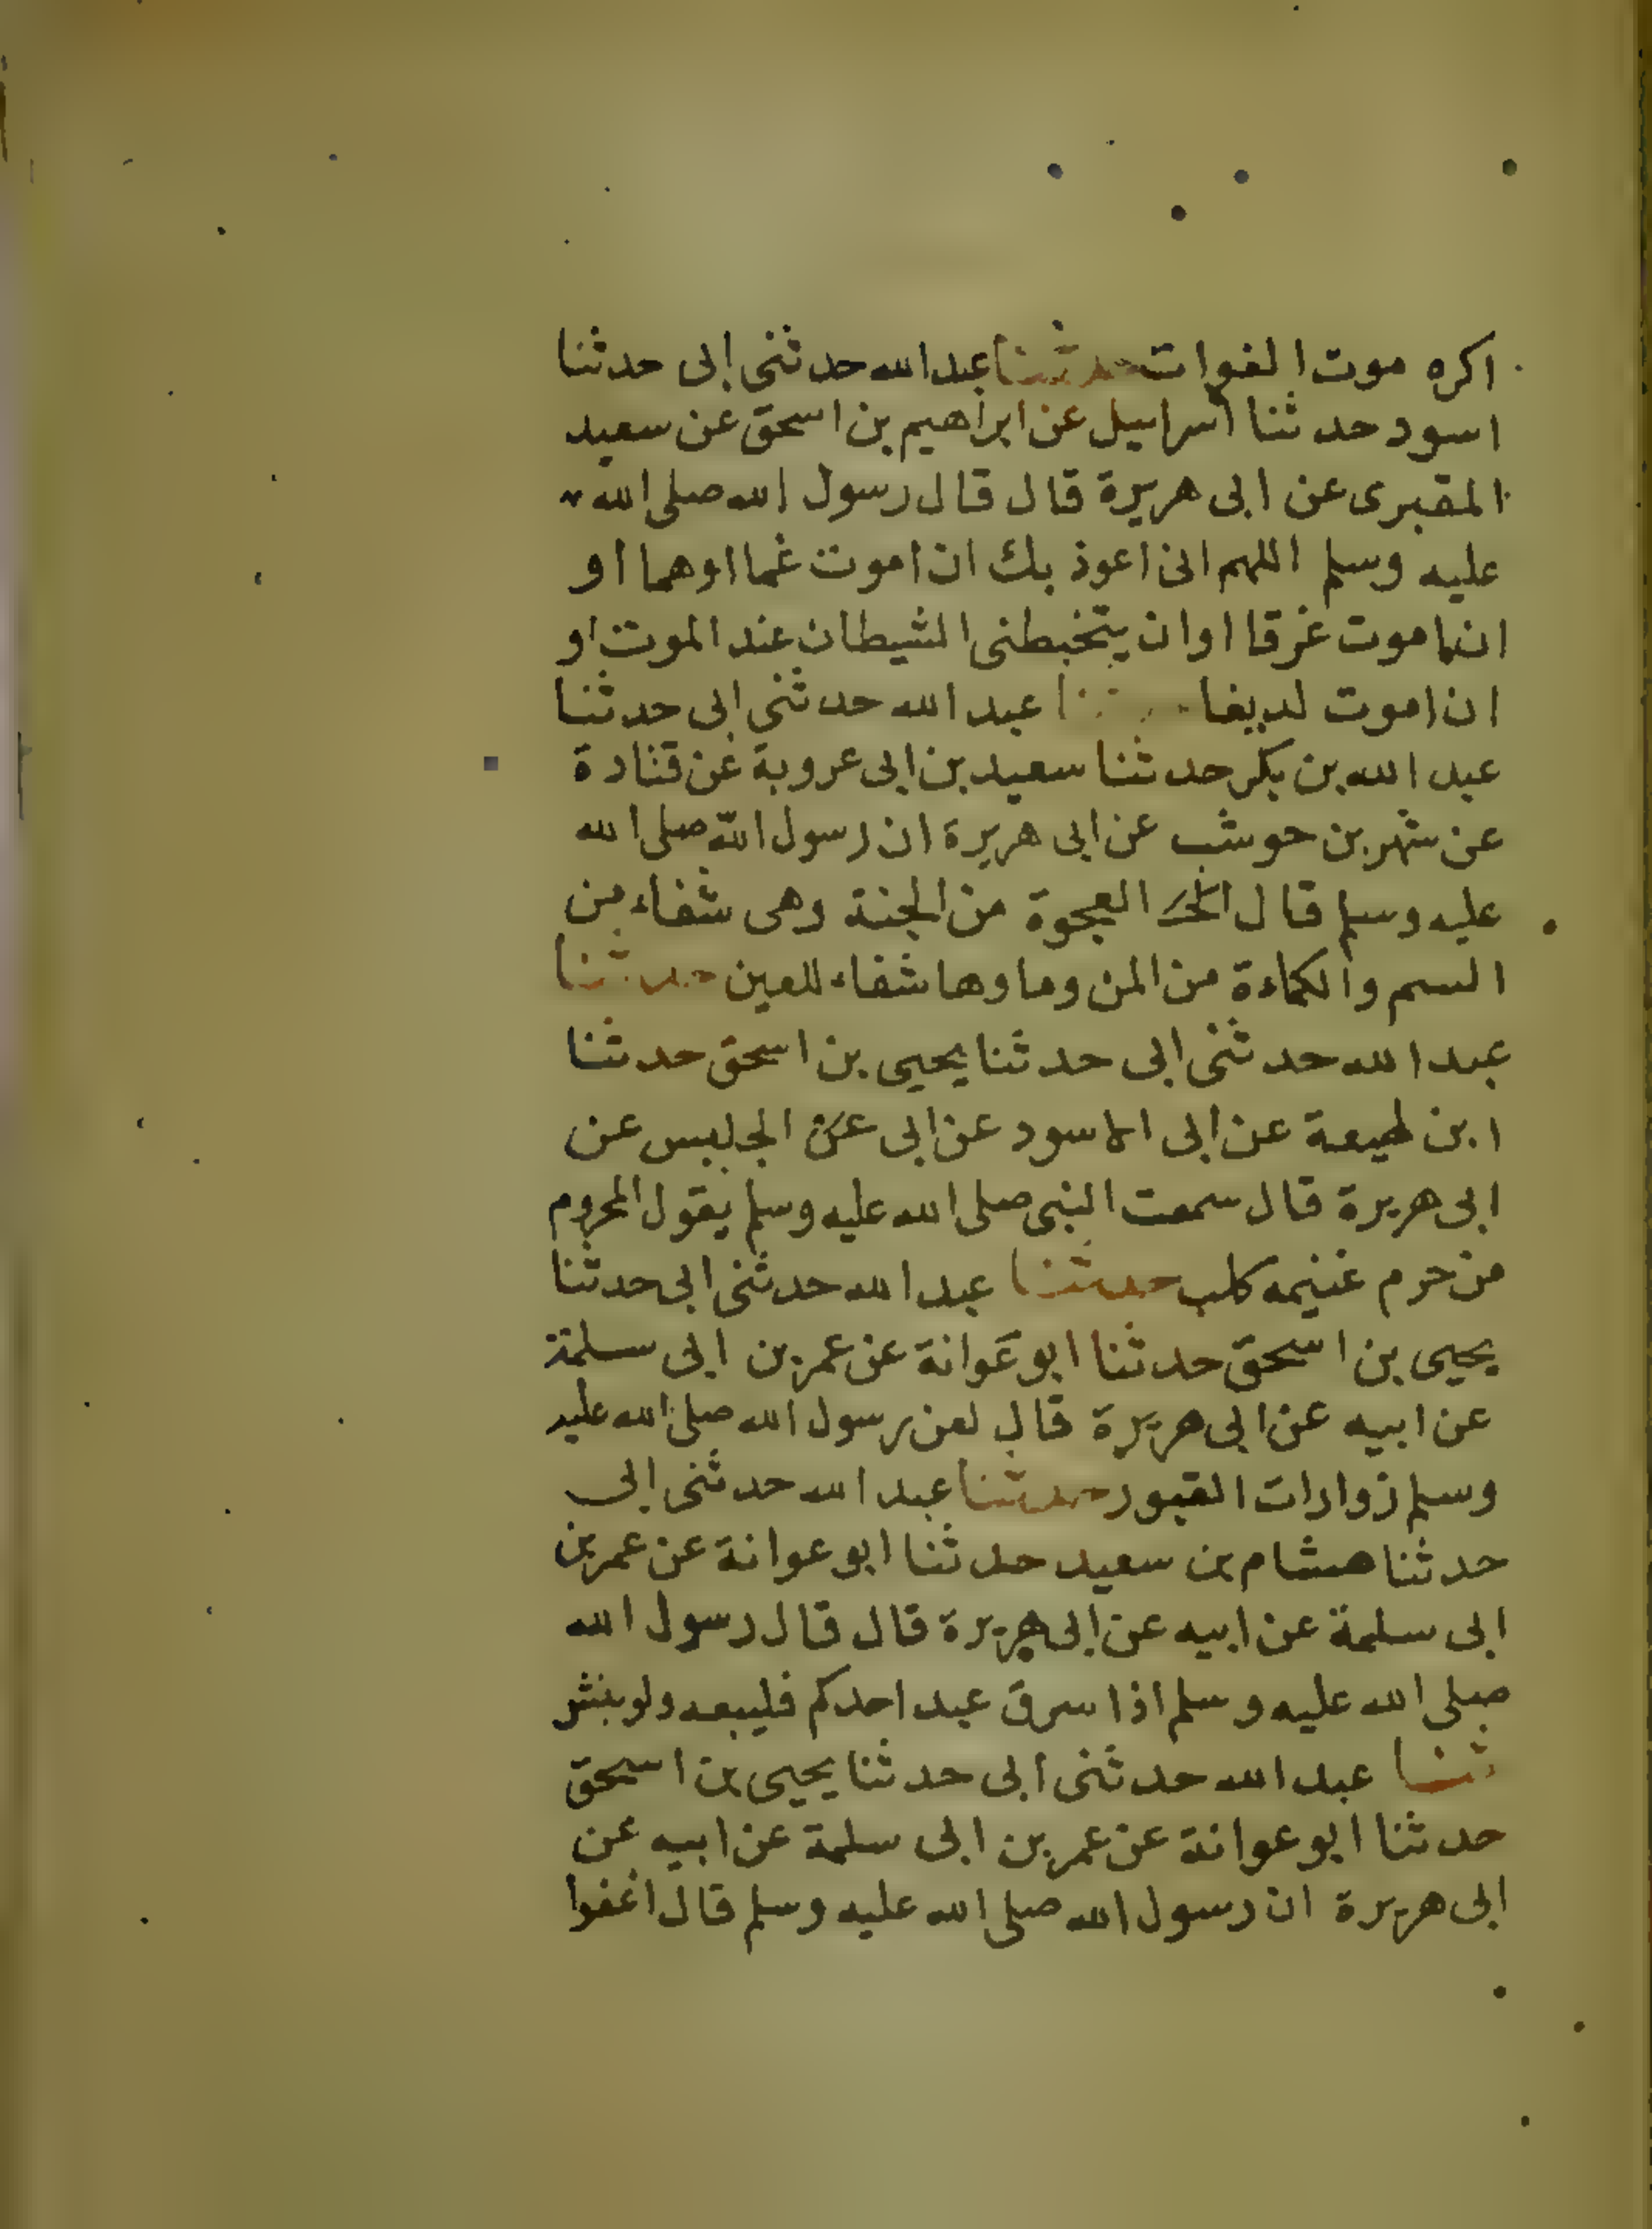 اكره موت الفوات حدثنا عبد الله حدثنى ابى حدثنا
اسود حدثنا اسراييل عن ابراهيم بن اسحق عن سعيد
المقبرى عن ابى هريرة قال قال رسول الله صلى الله
عليه وسلم اللهم انى اعوذ بك ان اموت غما اوهما او
ان اموت غرقا اوان يتخبطنى الشيطان عند الموت او
ان اموت لديغا حدثنا عبد الله حدثنى ابى حدثنا
عبد الله بن بكر حدثنا سعيد بن ابى عروبة عن قتادة
عن شهر بن حوشب عن ابى هريرة ان رسول الله صلى الله
عليه وسلم قال العجوة من الجنة وهى شفاء من
السم والكماءة من المن وماوها شفاء للعين حدثنا
عبد الله حدثنى ابى حدثنا يحيى بن اسحق حدثنا
ابن لهيعة عن ابى الاسود عن ابى عن
ابى هريرة قال سمعت النبى صلى الله عليه وسلم يقول المحروم
من حرم غنيمه كلب حدثنا عبد الله حدثنى ابى حدثنا
يحيى بن اسحق حدثنا ابو عوانة عن عمر بن ابى سلمة
عن ابيه عن ابى هريرة قال لعن رسول الله صلى الله عليه
وسلم زوارات القبور حدثنا عبد الله حدثنى ابى
حدثنا هشام بن سعيد حدثنا ابو عوانة عن عمر بن
ابى سلمة عن ابيه عن ابى هريرة قال قال رسول الله
صلى الله عليه وسلم اذا سرق عبد احدكم فليبعه ولو بنش
ثنا عبد الله حدثنى ابى حدثنا يحيى بن اسحق
حدثنا ابو عوانة عن عمر بن ابى سلمة عن ابيه عن
ابى هريرة ان رسول الله صلى الله عليه وسلم قال اعفوا